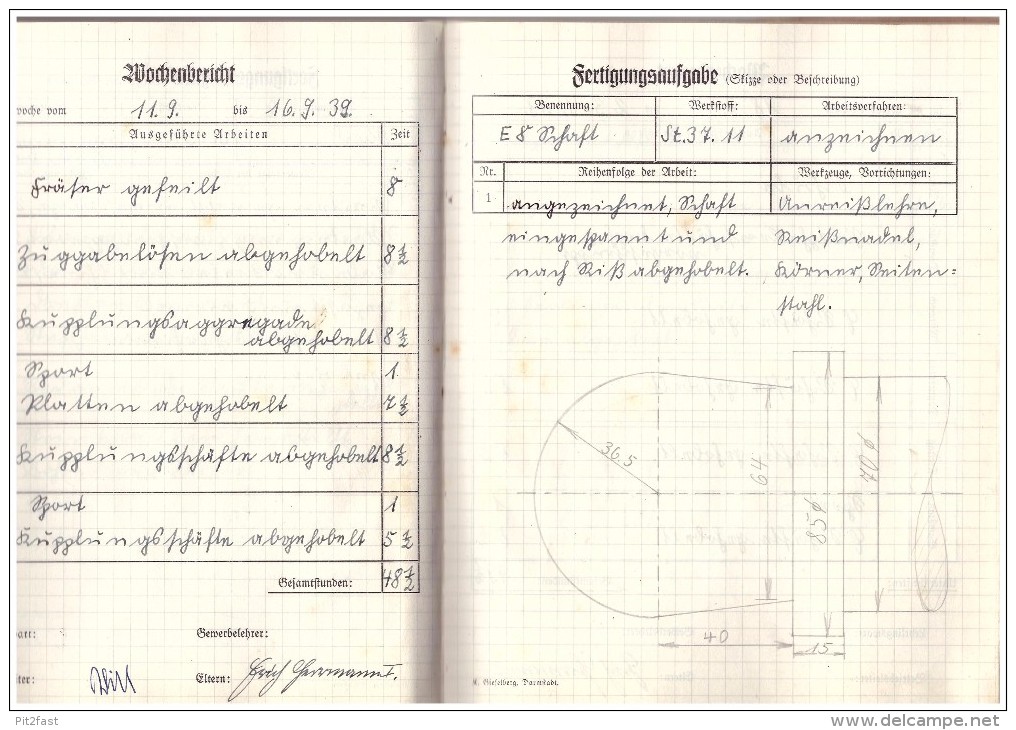 Wochenbericht
woche vom 11.9. bis 16.9.39.
Ausgeführte Arbeiten Zeit
Fräser gefeilt 8
Zuggabelösen abgehobelt 8 1/2
Kupplungsaggregade
abgehobelt 8 1/2
Sport 1
Platten abgehobelt 7 1/2
Kupplungsschäfte abgehobelt 8 1/2
Sport 1
Kupplungsschäfte abgehobelt 5 1/2
Gesamtstunden: 48 1/2
Gewerbelehrer:
Eltern: Erich Herrmann I.
Fertigungsaufgabe (Skizze oder Beschreibung)
Benennung: Werkstoff: Arbeitsverfahren:
E 8 Schaft St.37.11 anzeichnen
Nr. Reihenfolge der Arbeit: Werkzeuge, Vorrichtungen:
1 angezeichnet, Schaft Anreißlehre,
eingespannt und Reißnadel,
nach Riß abgehobelt. Körner, Seiten=
stahl.
36,5
64
85 ϕ
70 ϕ
40
15
E. Gieselberg, Darmstadt.
Pit2fast
www.delcampe.net